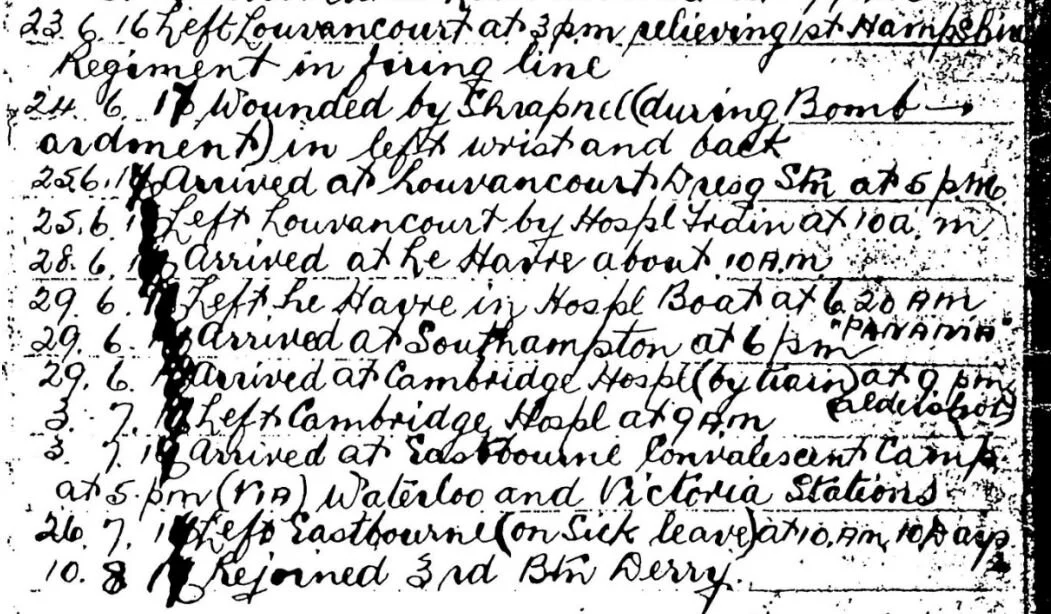 23. 6. 16 Left Louvancourt at 3 pm relieving 1st Hampshire
Regiment in firing line
24. 6. 16 Wounded by Shrapnel (during Bomb
ardment) in left wrist and back
25.6.16 Arrived at Louvancourt Dresg Stn at 5 p.m.
25.6.16 Left Louvancourt by Hospl Train at 10 a.m
28.6.16 Arrived at Le Havre about 10 A.m
29.6.16 Left Le Havre in Hospl Boat at 6.20 AM
"PANAMA"
29.6.16 Arrived at Southampton at 6 pm
29.6.16 Arrived at Cambridge Hospl (by train) at 9 pm
(Aldershot)
3. 7. 16 Left Cambridge Hospl at 9 Am
3. 7. 16 Arrived at Eastbourne Convalescent Camp
at 5. pm (VIA) Waterloo and Victoria Stations
26. 7. 16 Left Eastbourne (on Sick leave) at 10. AM, 10 Days
10. 8 16 Rejoined 3rd Btn Derry.